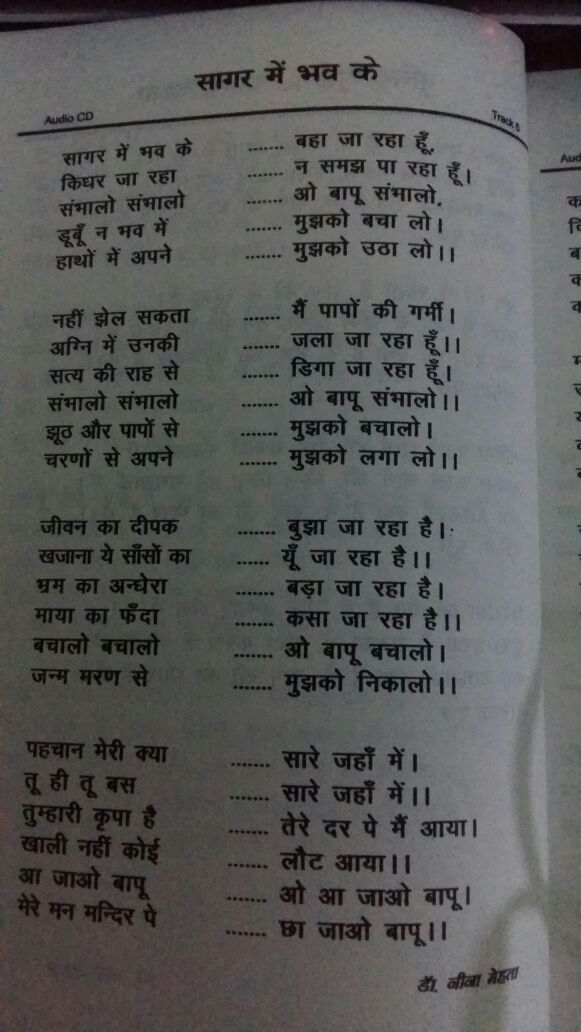 सागर में भव के
Audio CD Track 8
सागर में भव के ....... बहा जा रहा हूँ,
किधर जा रहा ....... न समझ पा रहा हूँ।
संभालो संभालो ....... ओ बापू संभालो,
डूबूँ न भव में ....... मुझको बचा लो।
हाथों में अपने ....... मुझको उठा लो।।
नहीं झेल सकता ....... मैं पापों की गर्मी।
अग्नि में उनकी ....... जला जा रहा हूँ।।
सत्य की राह से ....... डिगा जा रहा हूँ।
संभालो संभालो ....... ओ बापू संभालो।।
झूठ और पापों से ....... मुझको बचालो।
चरणों से अपने ....... मुझको लगा लो।।
जीवन का दीपक ....... बुझा जा रहा है।
खजाना ये साँसों का ...... यूँ जा रहा है।।
भ्रम का अन्धेरा ....... बड़ा जा रहा है।
माया का फँदा ....... कसा जा रहा है।।
बचालो बचालो ....... ओ बापू बचालो।
जन्म मरण से ....... मुझको निकालो।।
पहचान मेरी क्या ....... सारे जहाँ में।
तू ही तू बस ....... सारे जहाँ में।।
तुम्हारी कृपा है ....... तेरे दर पे मैं आया।
खाली नहीं कोई ....... लौट आया।।
आ जाओ बापू ....... ओ आ जाओ बापू।
मेरे मन मन्दिर पे ....... छा जाओ बापू।।
डॉ. नीना मेहता